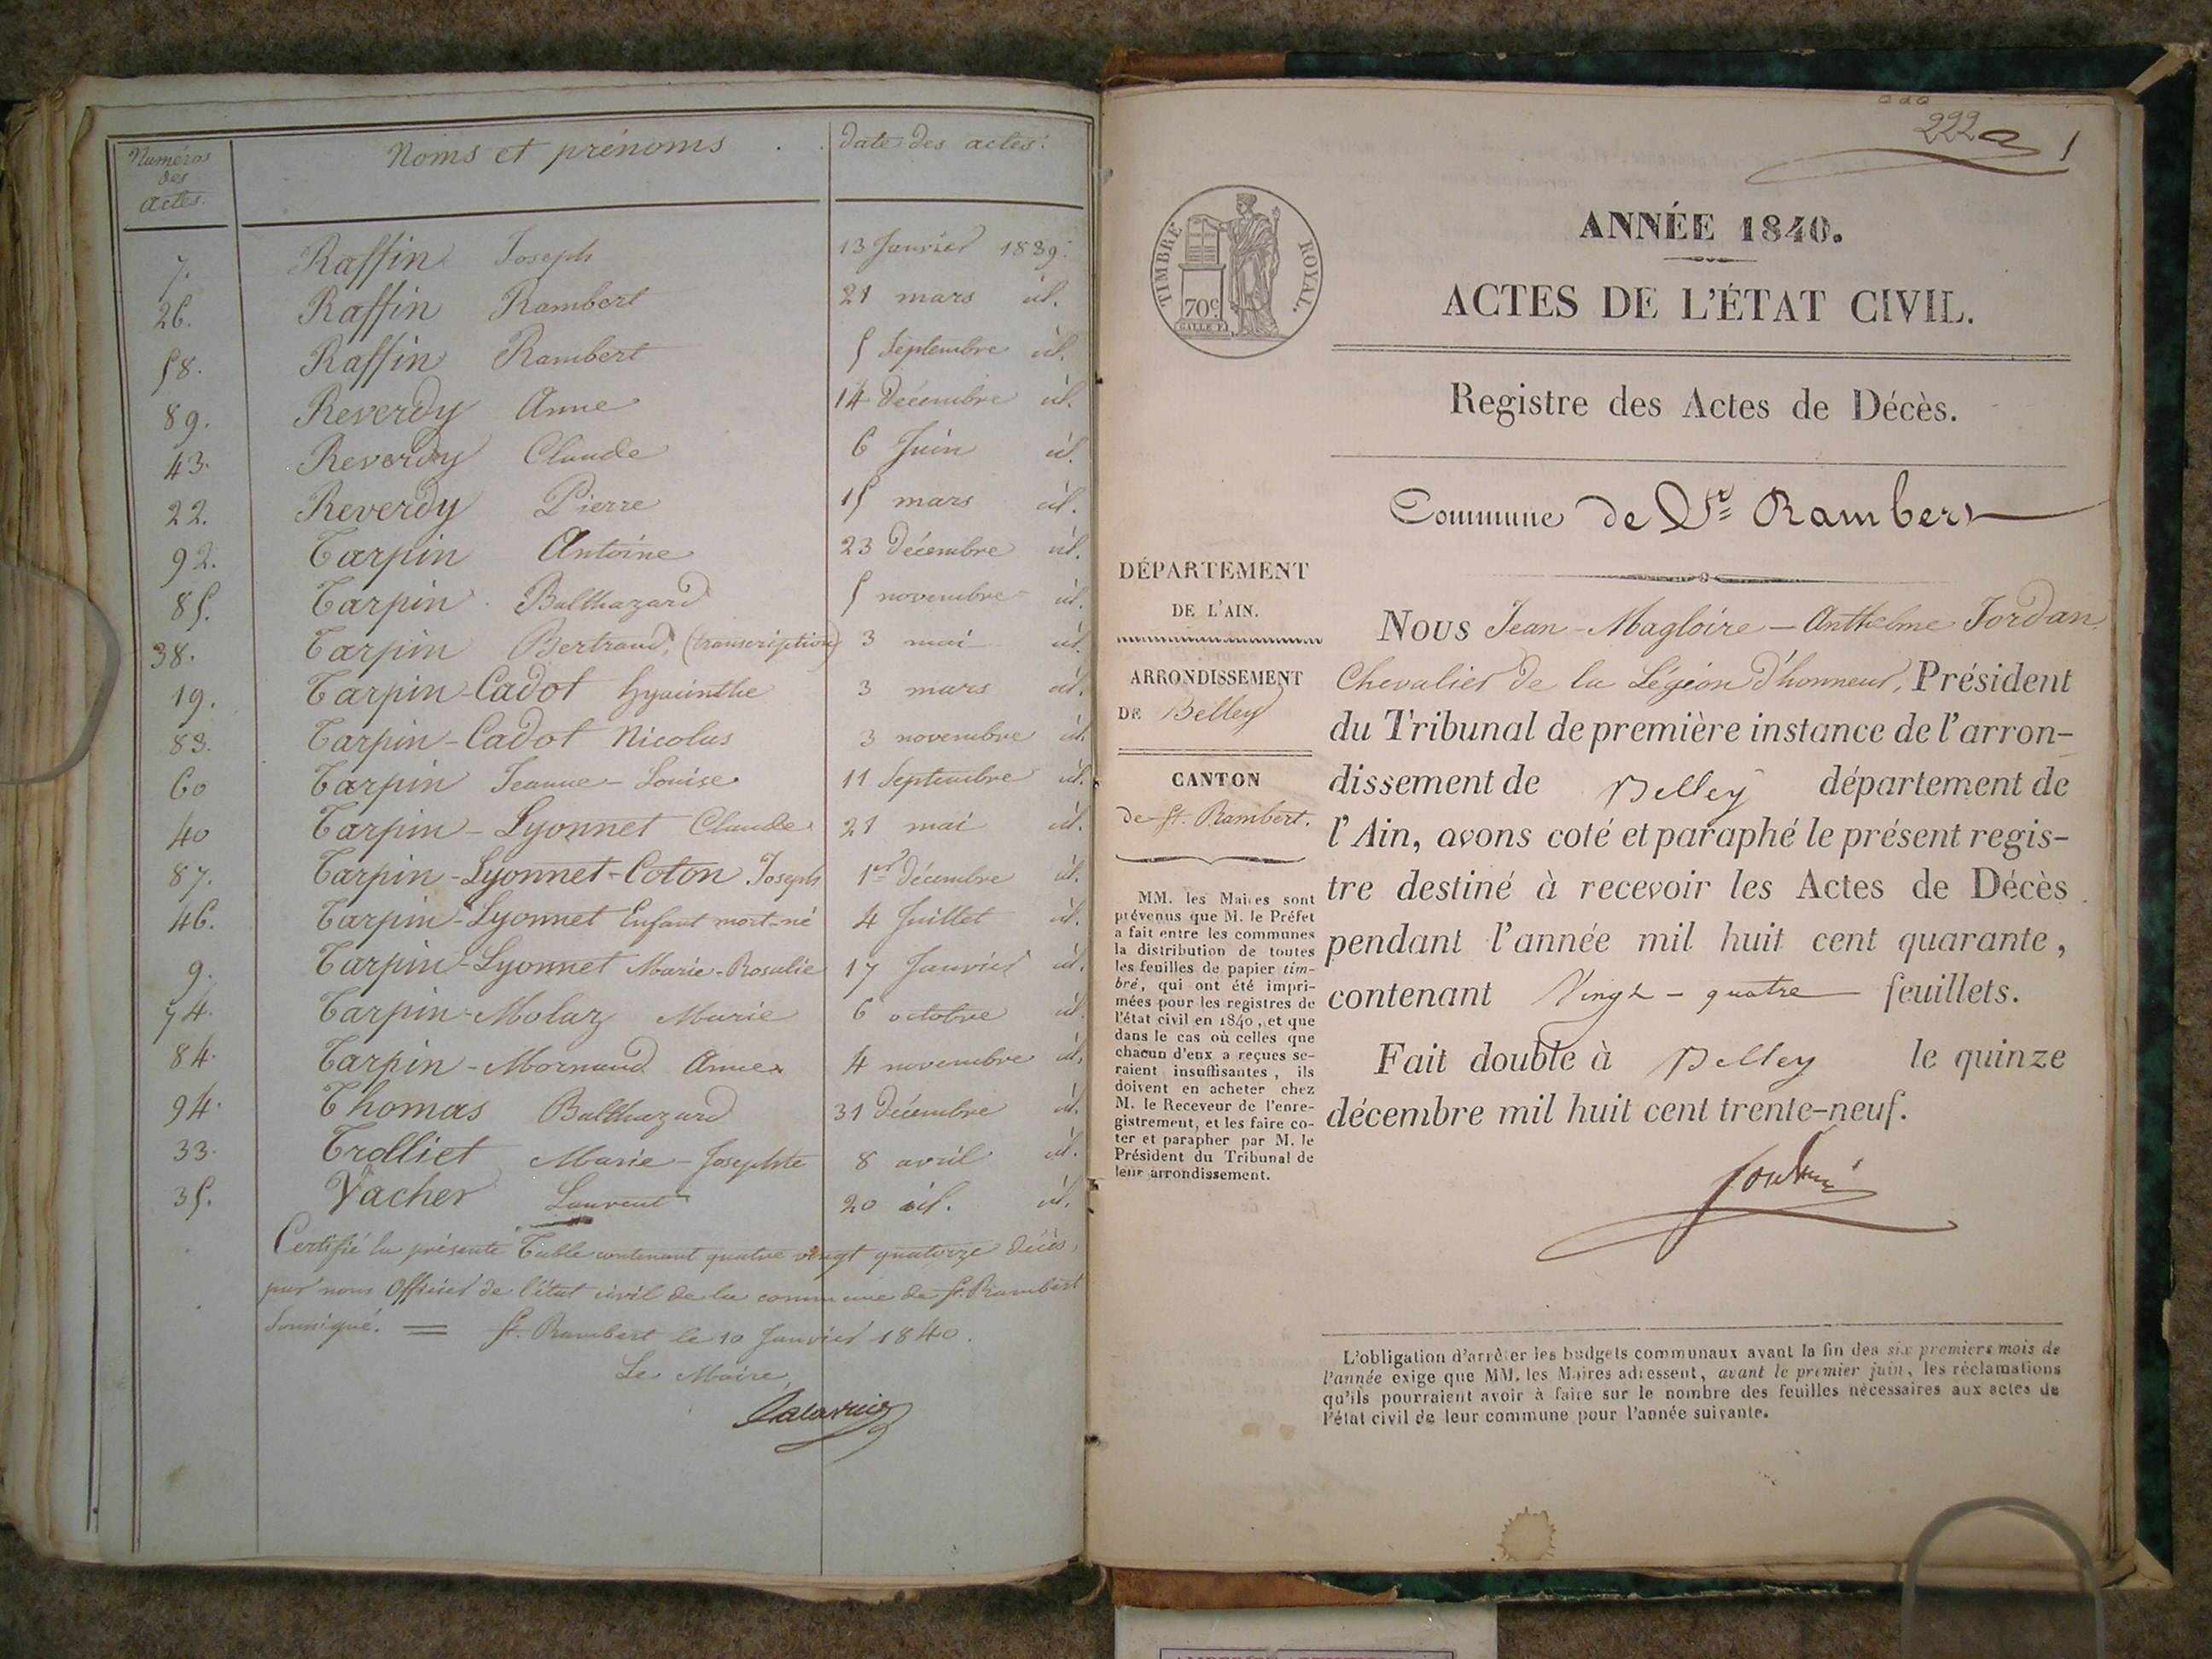 Numéros des actes.
Noms et prénoms
date des actes.
7. Raffin Joseph 13 Janvier 1839.
26. Raffin Rambert 21 mars id.
58. Raffin Rambert 5 Septembre id.
89. Reverdy Anne 14 Décembre id.
43. Reverdy Claude 6 Juin id.
22. Reverdy Pierre 15 mars id.
92. Tarpin Antoine 23 Décembre id.
85. Tarpin Balthazard 5 novembre id.
38. Tarpin Bertrand, (transcription) 3 mai id.
19. Tarpin-Cadot hyacinthe 3 mars id.
83. Tarpin-Cadot Nicolas 3 novembre id.
60 Tarpin Jeanne-Louise 11 Septembre id.
40 Tarpin-Lyonnet Claude 21 mai id.
87. Tarpin-Lyonnet-Coton Joseph 1er Décembre id.
46. Tarpin-Lyonnet Enfant mort-né 4 Juillet id.
9. Tarpin-Lyonnet Marie-Rosalie 17 Janvier id.
74. Tarpin-Molaz Marie 6 octobre id.
84. Tarpin-Mornand Anne 4 novembre id.
94. Thomas Balthazard 31 Décembre id.
33. Trolliet Marie-Josephte 8 avril id.
35. Vacher Laurent 20 id. id.
Certifié la présente Table contenant quatre vingt quatorze décès,
par nous Officier de l'état civil de la commune de St. Rambert
Soussigné. = St. Rambert le 10 Janvier 1840.
Le Maire,
222
1
TIMBRE ROYAL.
70c
ANNÉE 1840.
ACTES DE L'ÉTAT CIVIL.
Registre des Actes de Décès.
Commune de St Rambert
DÉPARTEMENT
DE L'AIN.
ARRONDISSEMENT
DE Belley
CANTON
de St. Rambert.
MM. les Maires sont
prévenus que M. le Préfet
a fait entre les communes
la distribution de toutes
les feuilles de papier tim-
bré, qui ont été impri-
mées pour les registres de
l'état civil en 1840, et que
dans le cas où celles que
chacun d'eux a reçues se-
raient insuffisantes, ils
doivent en acheter chez
M. le Receveur de l'enre-
gistrement, et les faire co-
ter et parapher par M. le
Président du Tribunal de
leur arrondissement.
NOUS Jean-Magloire-Anthelme Jordan
Chevalier de la Légion d'honneur, Président
du Tribunal de première instance de l'arron-
dissement de Belley département de
l'Ain, avons coté et paraphé le présent regis-
tre destiné à recevoir les Actes de Décès
pendant l'année mil huit cent quarante,
contenant Vingt-quatre feuillets.
Fait double à Belley le quinze
décembre mil huit cent trente-neuf.
L'obligation d'arrêter les budgets communaux avant la fin des six premiers mois de
l'année exige que MM. les Maires adressent, avant le premier juin, les réclamations
qu'ils pourraient avoir à faire sur le nombre des feuilles nécessaires aux actes de
l'état civil de leur commune pour l'année suivante.